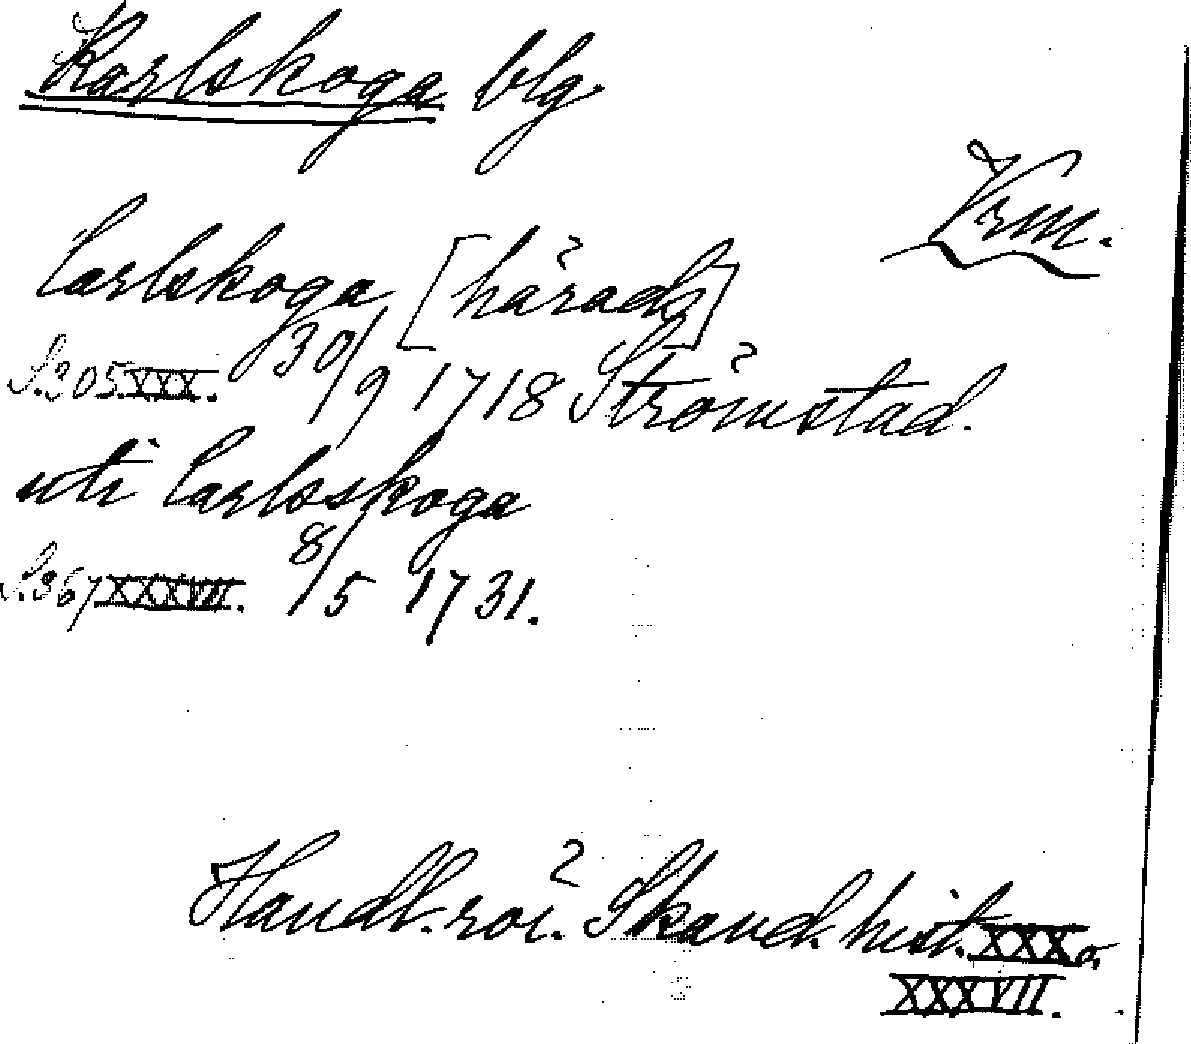 Karlskoga blg
Vrm.
Carlskoga [härads]
S.205 XXX. 30/9 1718 Strömstad.
uti Carlsskoga
S.367 XXXVII. 8/5 1731.
Handl. rör. Skand. hist. XXX o.
XXXVII.